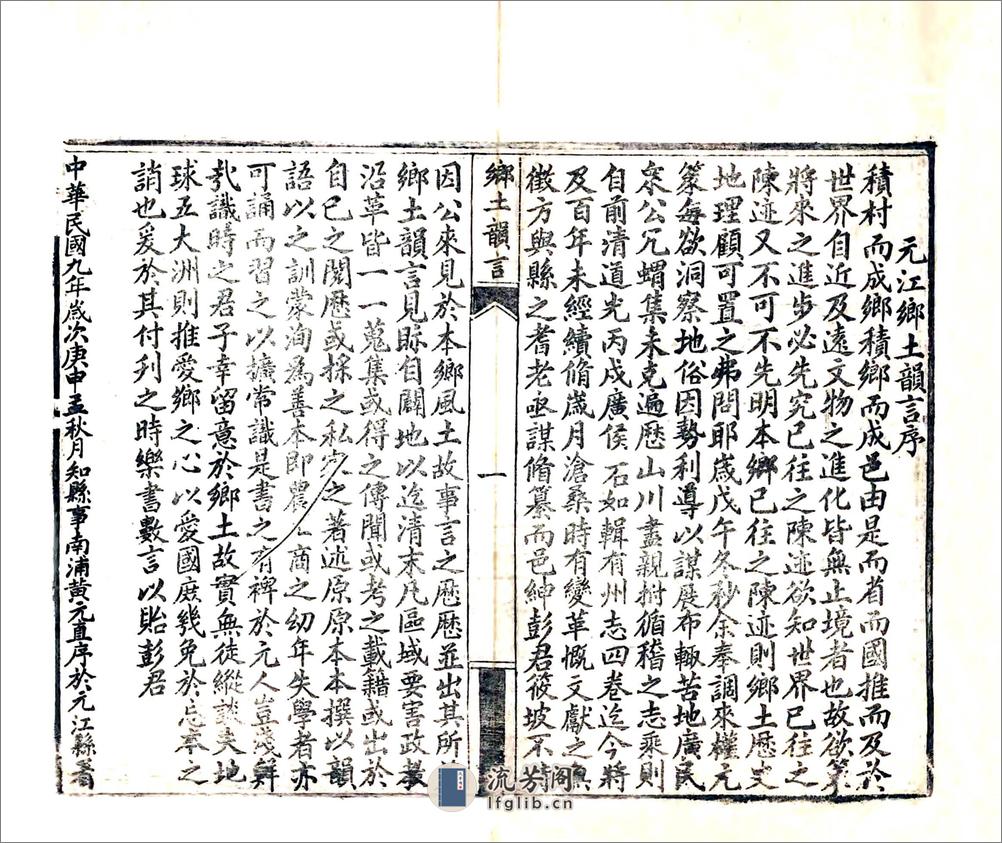 元江鄉土韻言序
積村而成鄉積鄉而成邑由是而省而國推而及於
世界自近及遠文物之進化皆無止境者也故欲策
將來之進步必先究已往之陳迹欲知世界已往之
陳迹又不可不先明本鄉已往之陳迹則鄉土歷史
地理顧可置之弗問耶歲戊午冬杪余奉調來權元
篆每欲洞察地俗因勢利導以謀展布輒苦地廣民
衆公冗蝟集未克遍歷山川盡親拊循稽之志乘則
自前清道光丙戌廣侯石如輯有州志四卷迄今將
及百年未經續脩歲月滄桑時有變革慨文獻之無
徵方與縣之耆老亟謀脩纂而邑紳彭君筱坡不時
鄉土韻言
一
因公來見於本鄉風土故事言之歷歷並出其所
鄉土韻言見眎自闢地以迄清末凡區域要害政教
沿革皆一一蒐集或得之傳聞或考之載籍或出於
自己之閱歷或採之私家之著述原原本本撰以韻
語以之訓蒙洵爲善本即農工商之幼年失學者亦
可誦而習之以擴常識是書之有裨於元人豈淺鮮
哉識時之君子幸留意於鄉土故實無徒縱談夫地
球五大洲則推愛鄉之心以愛國庶幾免於忘本之
誚也爰於其付刋之時樂書數言以貽彭君
中華民國九年歲次庚申孟秋月知縣事南浦黃元直序於元江縣署
流芳閣
lfglib.cn